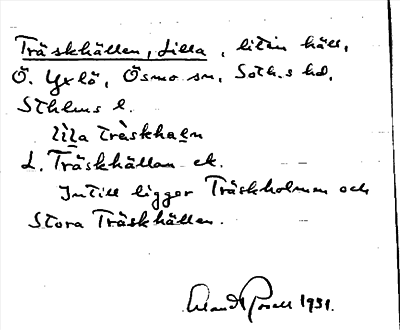 Träskhällen, Lilla, liten häll,
Ö. Yxlö, Ösmo sn, Soth.s hd,
Sthlms l.
lila träskhaln
L. Träskhällan ek.
Intill ligger Träskholmen och
Stora Träskhällen.
Erland Rosell 1931.